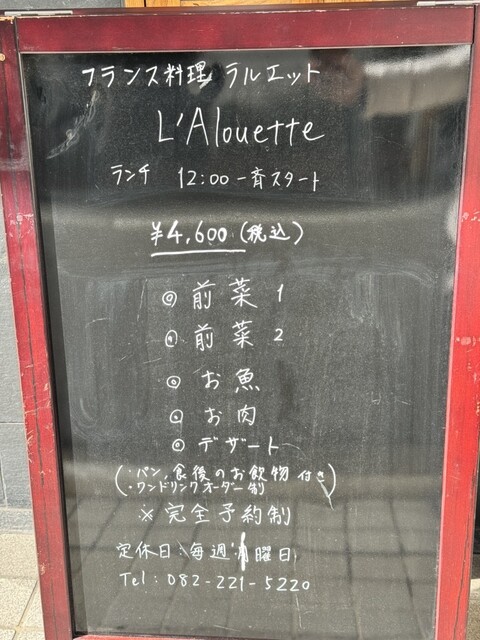 フランス料理 ラルエット
L'Alouette
ランチ 12:00 一斉スタート
¥4,600 (税込)
◎ 前菜 1
◎ 前菜 2
◎ お魚
◎ お肉
◎ デザート
(・パン、食後のお飲物 付き
・ワンドリンクオーダー制)
※ 完全予約制
定休日:毎週 曜日
Tel:082-221-5220